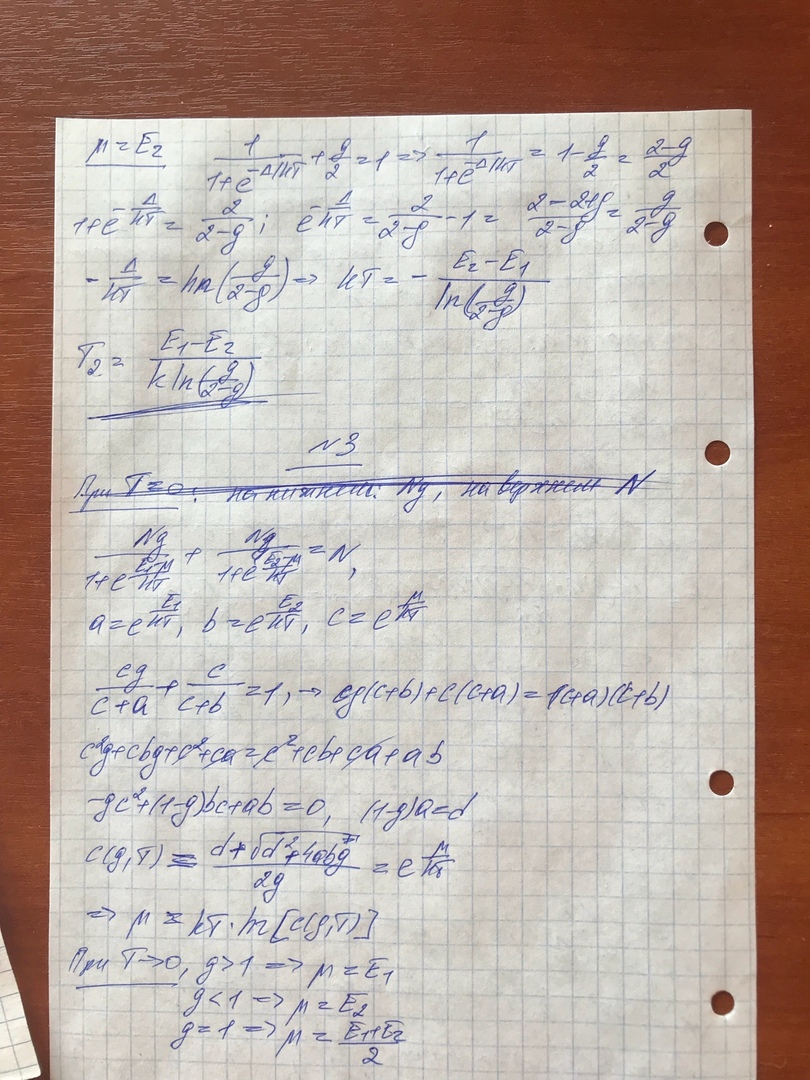 μ = E₂   1/(1+e^(-Δ/kT)) + g/2 = 1 => 1/(1+e^(-Δ/kT)) = 1 - g/2 = (2-g)/2
1+e^(-Δ/kT) = 2/(2-g); e^(-Δ/kT) = 2/(2-g) - 1 = (2-2+g)/(2-g) = g/(2-g)
-Δ/kT = ln(g/(2-g)) => kT = - (E₂-E₁)/ln(g/(2-g))
T₂ = (E₁-E₂)/(k ln(g/(2-g)))
N3
При T=0: на нижнем: Ng, на верхнем N
Ng/(1+e^((E₁-μ)/kT)) + Ng/(1+e^((E₂-μ)/kT)) = N,
a = e^(E₁/kT), b = e^(E₂/kT), c = e^(μ/kT)
cg/(c+a) + c/(c+b) = 1, → cg(c+b)+c(c+a) = (c+a)(c+b)
c²g+cbg+c²+ca = c²+cb+ca+ab
-gc²+(1-g)bc+ab = 0, (1-g)a = d
c(g,T) = (d+√(d²+4abg))/2g = e^(μ/kT)
=> μ = kT·ln[c(g,T)]
При T→0, g>1 => μ = E₁
g<1 => μ = E₂
g=1 => μ = (E₁+E₂)/2